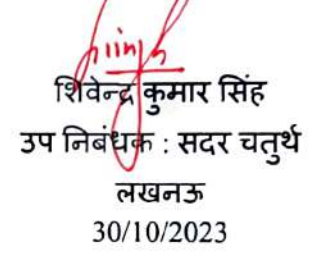 शिवेन्द्र कुमार सिंह
उप निबंधक : सदर चतुर्थ
लखनऊ
30/10/2023